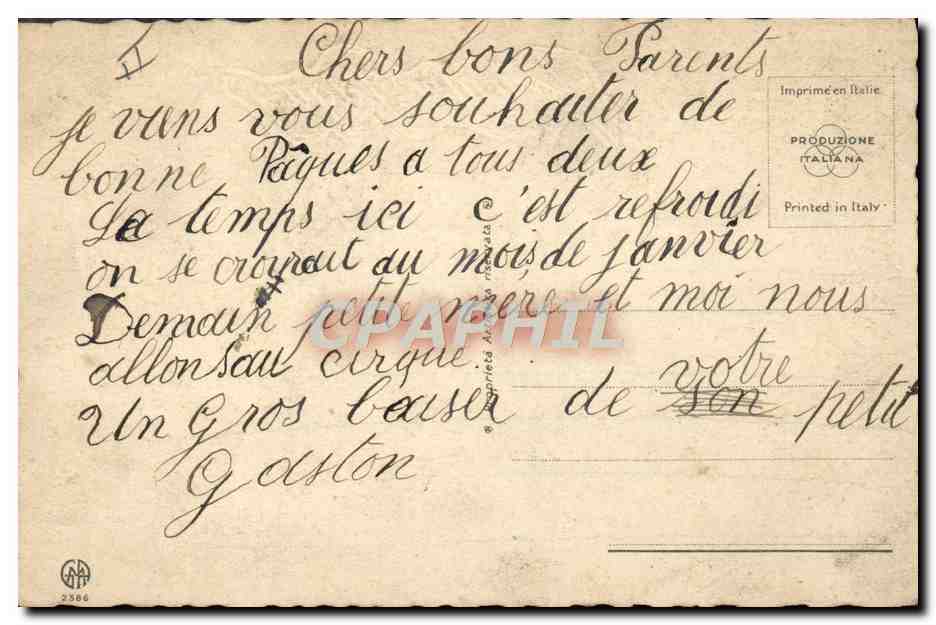 II
Chers bons Parents
je viens vous souhaiter de
bonne Pâques a tous deux
Le temps ici c'est refroidi
on se croirait au mois de janvier
Demain petite mère et moi nous
allons au cirque.
Un Gros baiser de votre petit
son
Gaston
Imprimé en Italie
PRODUZIONE
ITALIANA
Printed in Italy
CPAPHIL
riservata
2386